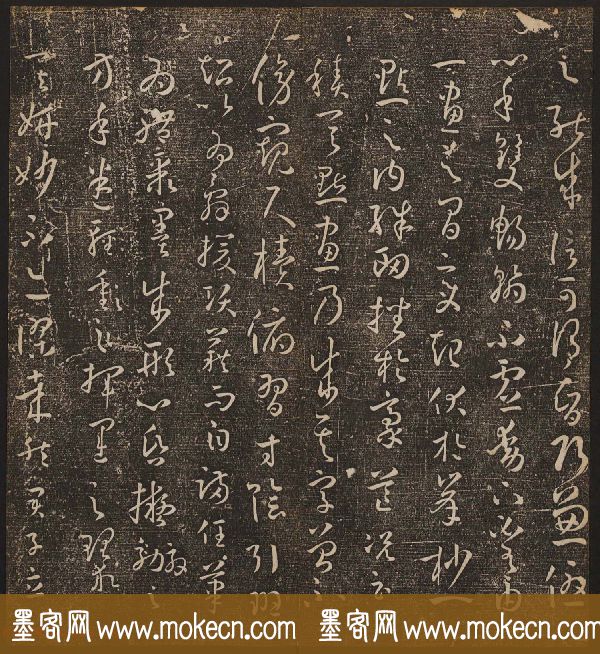 之能成信可謂智巧兼優
心手雙暢翰不虛動下必有由
一畫之間變起伏於峯杪一
點之內殊衄挫於豪芒況云
積其點畫乃成其字曾不
傍窺尺櫝俯習寸陰引班
超以為辭援項籍而自滿任筆
為體聚墨成形心昏擬效之
方手迷揮運之理求
其妍妙不亦謬哉然君子立
墨客网 www.mokecn.com 墨客网 www.mokecn.com